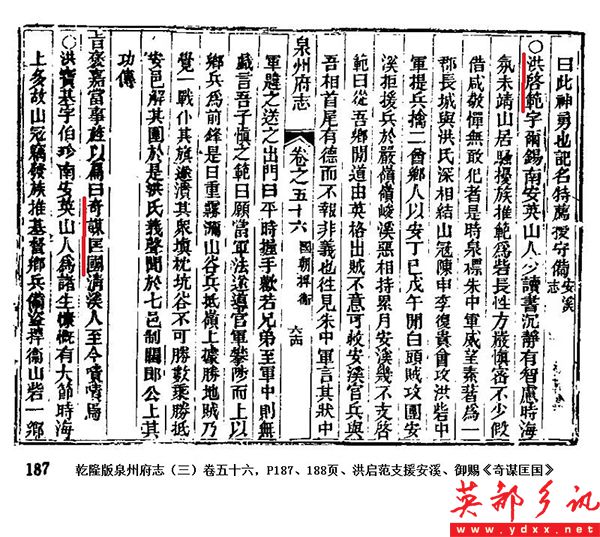 曰此神勇也記名特薦授守備 安溪志
○洪啓範字爾錫南安英山人少讀書沉靜有智慮時海
氛未靖山居騷擾族推範爲砦長性方嚴愼審不少假
借咸敬憚無敢犯者是時泉標朱中軍威望素著爲一
郡長城與洪氏深相結山冦陳申李復貴會攻洪砦中
軍提兵擒二酋鄉人以安丁巳戊午開白頭賊攻圍安
溪拒援兵於嚴嶺嶺峻溪惡相持累月安溪幾不支啓
範曰從吾鄉開道由英格出賊不意可救安溪官兵與
泉州府志 卷之五十六 國朝捍衛
吾相首尾有德而不報非義也往見朱中軍言其狀中
軍韙之送之出門曰平時握手歡若兄弟至軍中則無
戲言吾子愼之範曰願當軍法遂導官軍攀陟而上以
鄉兵爲前鋒是日重霧瀰山谷兵抵嶺上據勝地賊乃
覺一戰仆其旗遂潰其衆塡枕坑谷不可勝數乘勝抵
安邑解其圍於是洪氏義聲聞於七邑制閫郎公上其
功傳
旨褒嘉當事旌以扁曰奇謀匡國淸溪人至今嘖嘖焉
○洪寶基字伯珍南安英山人爲諸生慷慨有大節時海
上多故山冦竊發族推基督鄉兵備盜捍衛山砦一鄉
187 乾隆版泉州府志（三）卷五十六，P187、188页、洪启范支援安溪、御赐《奇谋匡国》
英都乡讯
www.ydxx.net